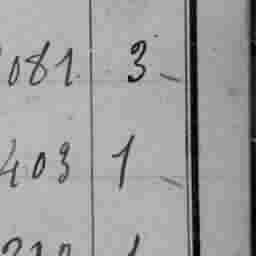 081 3
403 1